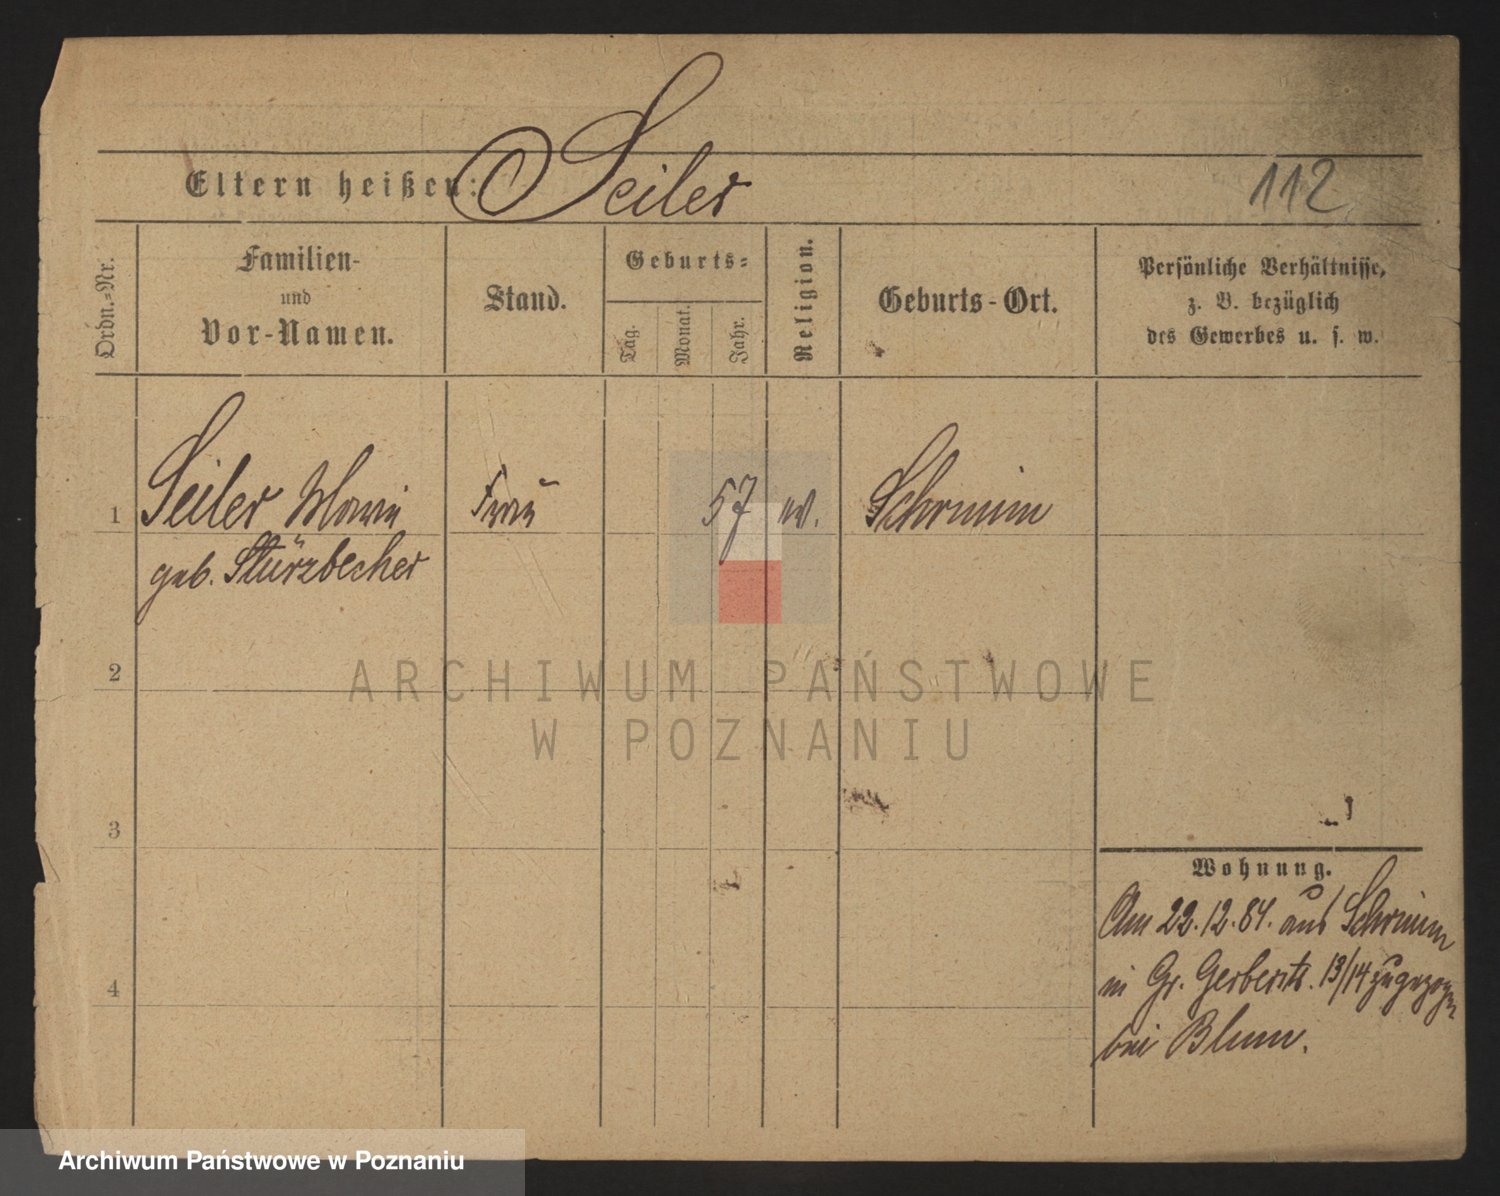 Eltern heißen: Seiler
112
Ordn.-Nr.
Familien-
und
Vor-Namen.
Stand.
Geburts-
Tag.
Monat.
Jahr.
Religion.
Geburts-Ort.
Persönliche Verhältnisse,
z. B. bezüglich
des Gewerbes u. s. w.
1 Seiler Marie Frau 57 Schrimm
geb. Stürzbecher
2
3
4
Wohnung.
Am 22.12.84. aus Schrimm
in Gr. Gerberstr. 13/14 zugezogen
bei Blum.
ARCHIWUM PAŃSTWOWE
W POZNANIU
Archiwum Państwowe w Poznaniu